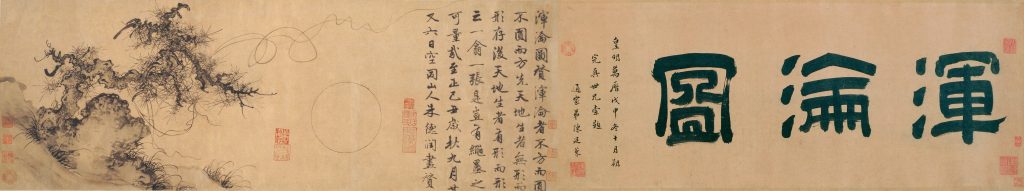 渾淪圖
皇明萬曆戊申冬十月朔
世兄索題
通家弟陳廷
渾淪圖贊渾淪者不方而圓
不圓而方先天地生者無形而
形存後天地生者有形而形
亡一翕一張是豈有繩墨之
可量哉至正己丑歲秋九月廿
又六日空同山人朱德潤畫贊